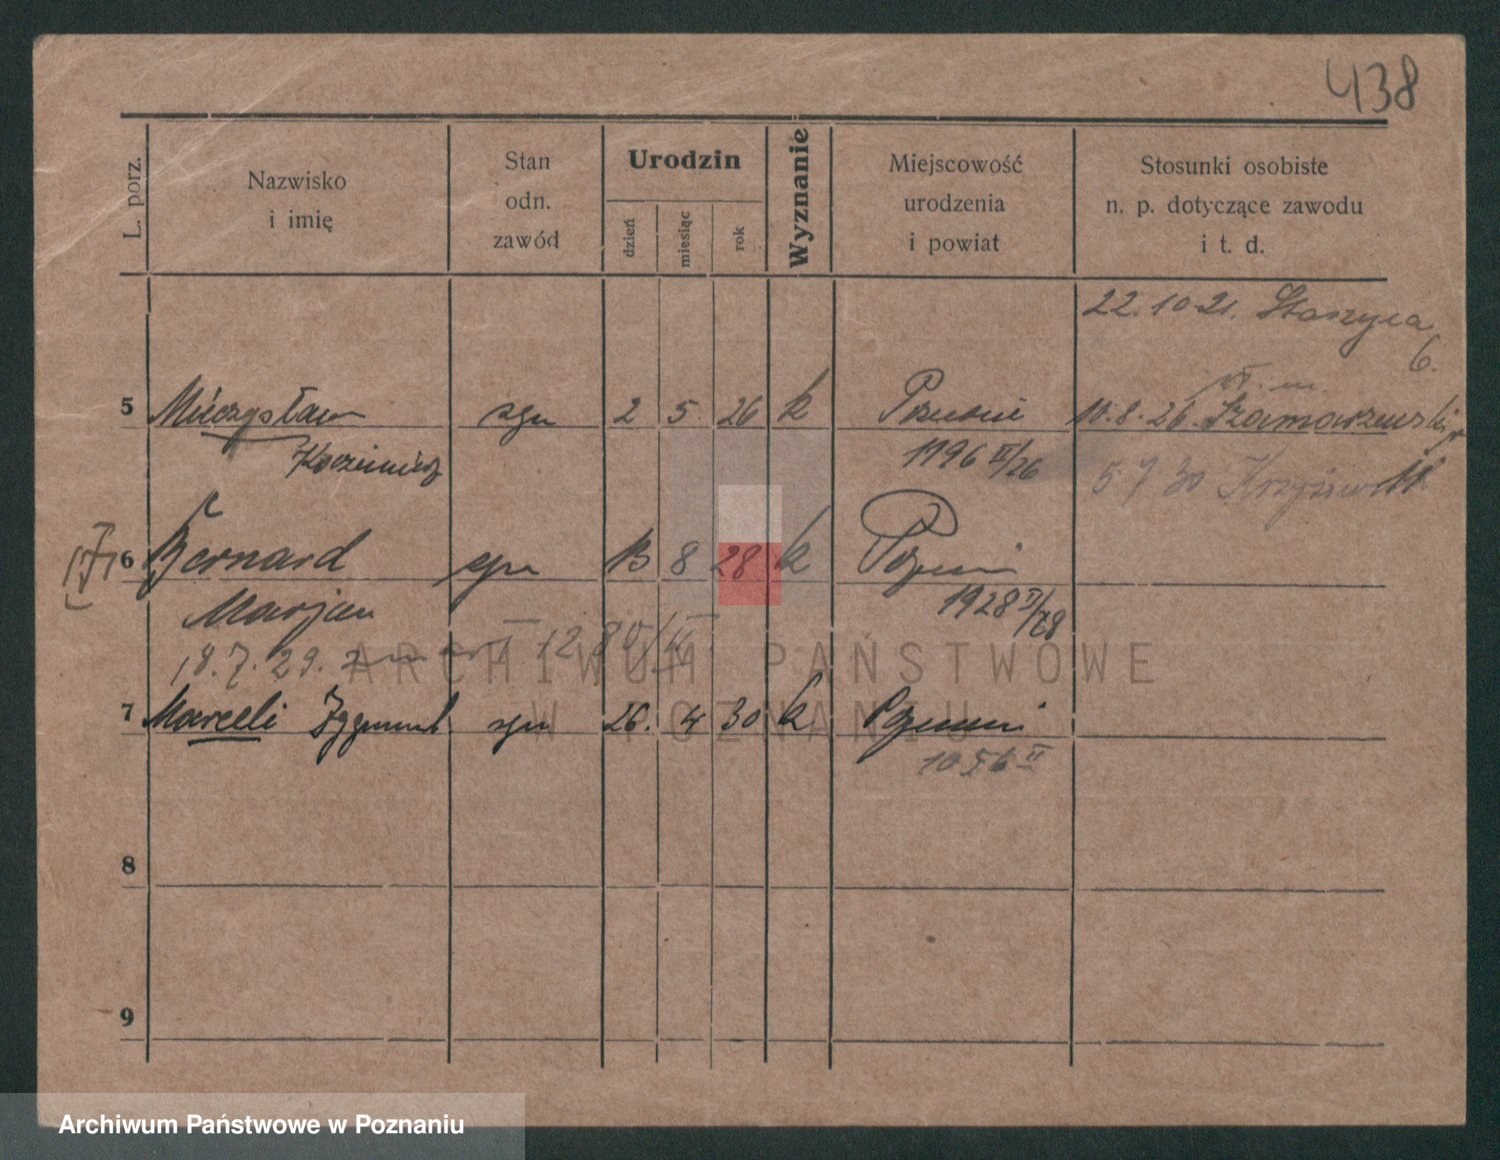 438
L. porz.
Nazwisko
i imię
Stan
odn.
zawód
Urodzin
dzień
miesiąc
rok
Wyznanie
Miejscowość
urodzenia
i powiat
Stosunki osobiste
n. p. dotyczące zawodu
i t. d.
22.10.21. Staszyca
6.
5 Mieczysław syn 2 5. 26 k Poznań 10.8.26. Szamarzewskiego
Kazimierz 1196 II/26
5 7 30
6 Bernard syn 13 8 28 k Poznań
Marjan 1928 II/28
18.7.29.
7 Marceli Zygmunt syn 26. 4 30 k Poznań
1056 II
8
9
ARCHIWUM PAŃSTWOWE
W POZNANIU
Archiwum Państwowe w Poznaniu